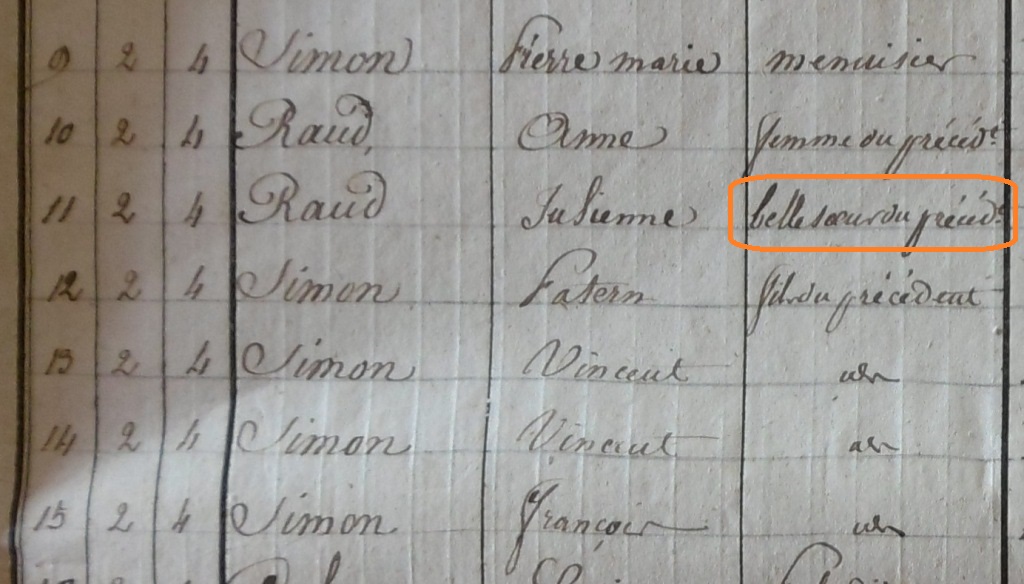 9 2 4 Simon Pierre marie menuisier
10 2 4 Raud, Anne femme du précédt
11 2 4 Raud Julienne belle soeur du précédt
12 2 4 Simon Patern fils du précédent
13 2 4 Simon Vincent idem
14 2 4 Simon Vincent idem
15 2 4 Simon François idem